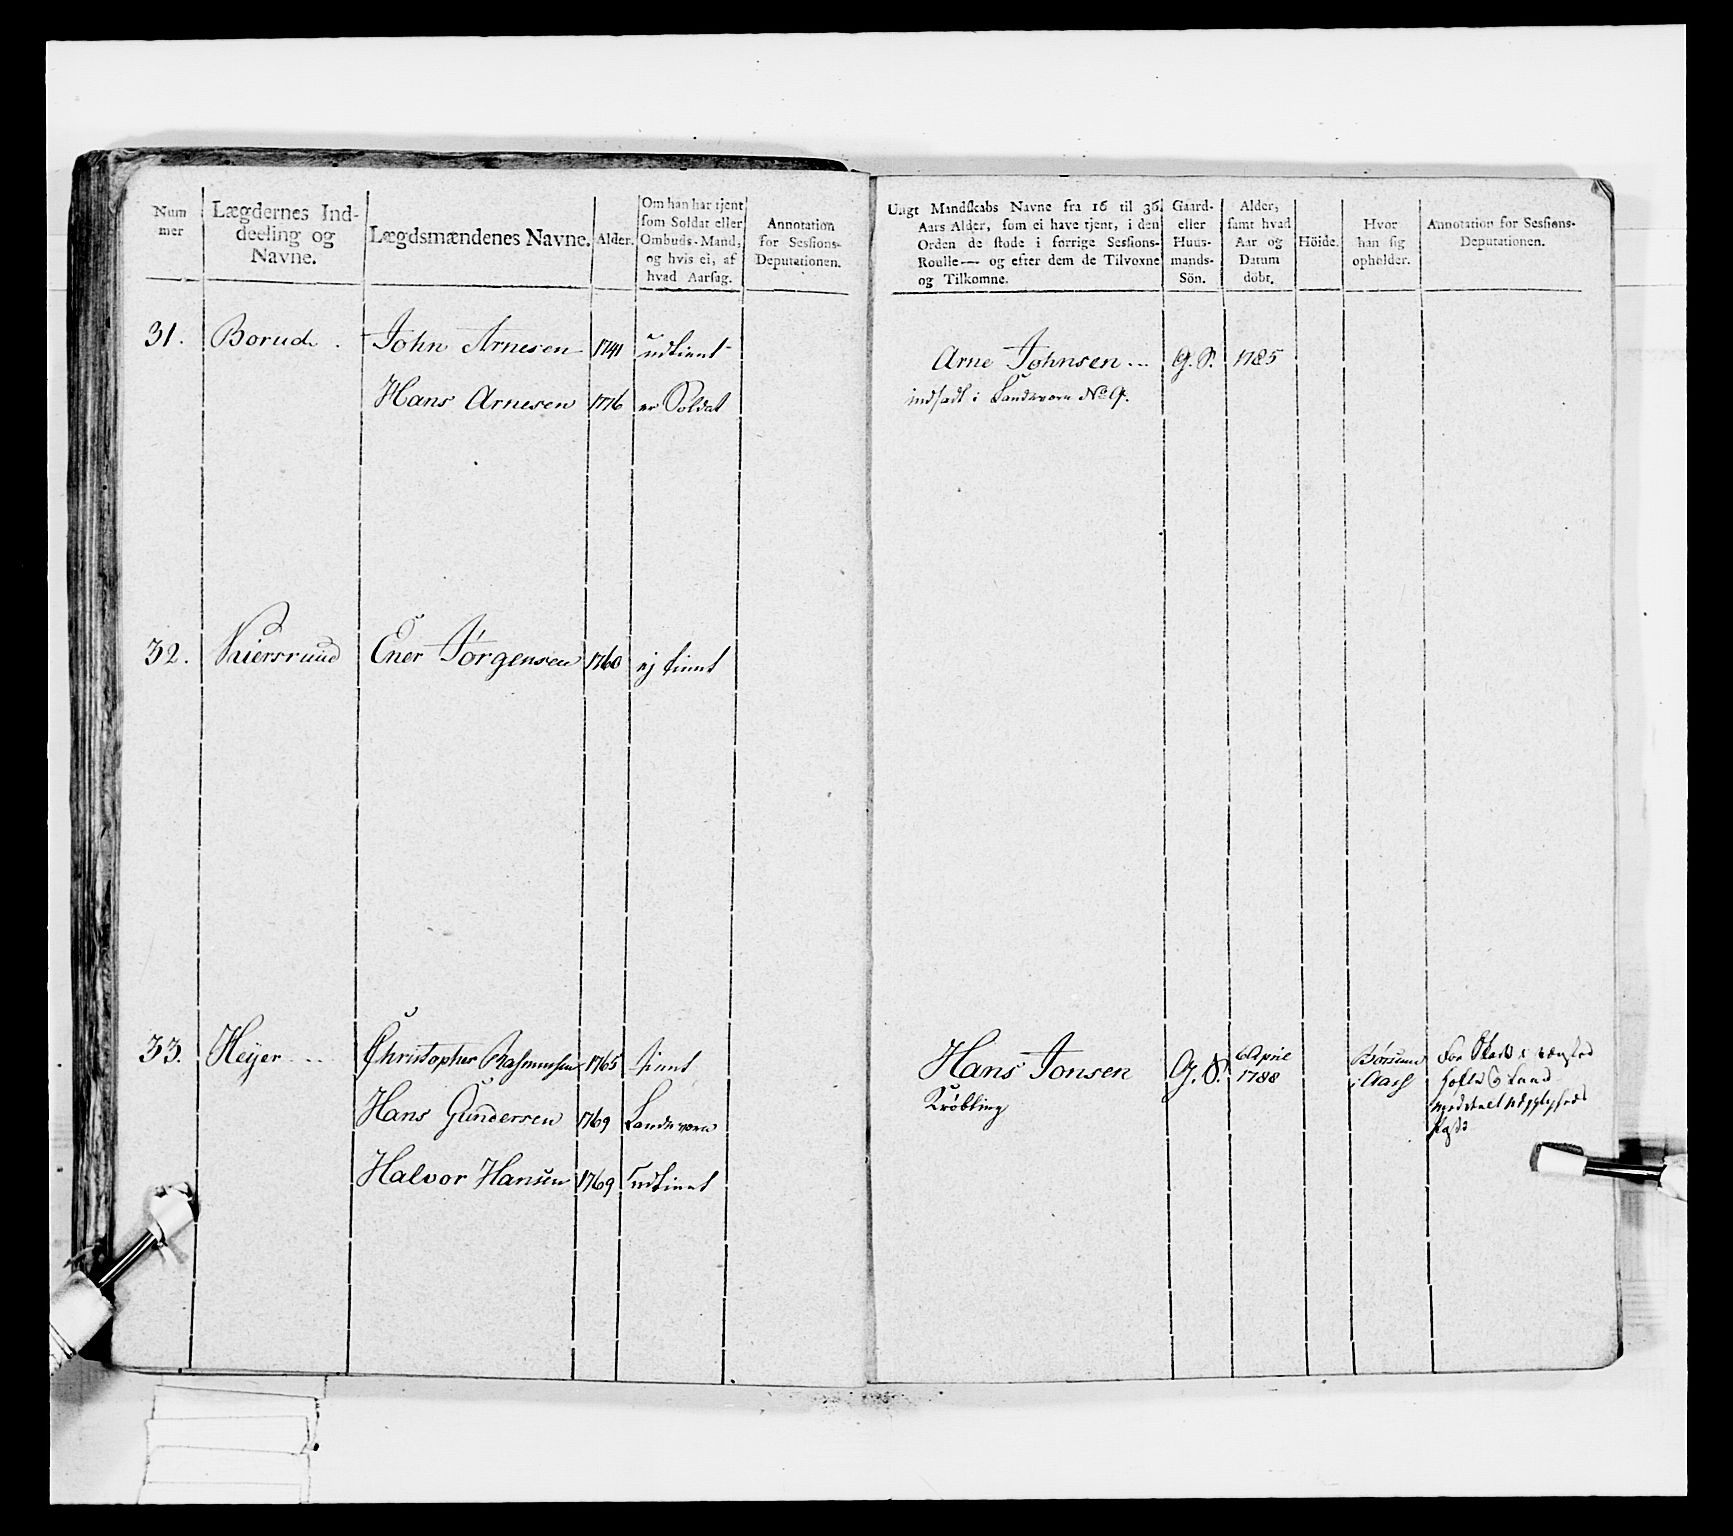 Num
mer
Lægdernes Ind-
deeling og
Navne.
Lægdsmændenes Navne.
Alder.
Om han har tjent
som Soldat eller
Ombuds-Mand,
og hvis ei, af
hvad Aarsag.
Annotation
for Sessions-
Deputationen.
31. Borud. John Arnesen 1741 udtient
Hans Arnesen 1776 er Soldat
32. Ener Jørgensen 1760 ej tient
33. Heyer Christopher Rasmussen 1765 tient
Hans Gundersen 1769 Landeværn
Halvor Hansen 1769 udtient
Ungt Mandskabs Navne fra 16 til 36
Aars Alder, som ei have tjent, i den
Orden de stode i forrige Sessions-
Roulle— og efter dem de Tilvoxne
og Tilkomne.
Gaard-
eller
Huus-
mands-
Sön.
Alder,
samt hvad
Aar og
Datum
döbt.
Höide.
Hvor
han sig
opholder.
Annotation for Sessions-
Deputationen.
Arne Johnsen G. S. 1785
indsadt i Landeværn No 9.
Hans Jonsen G. S. 6 April 1788
Krøbling